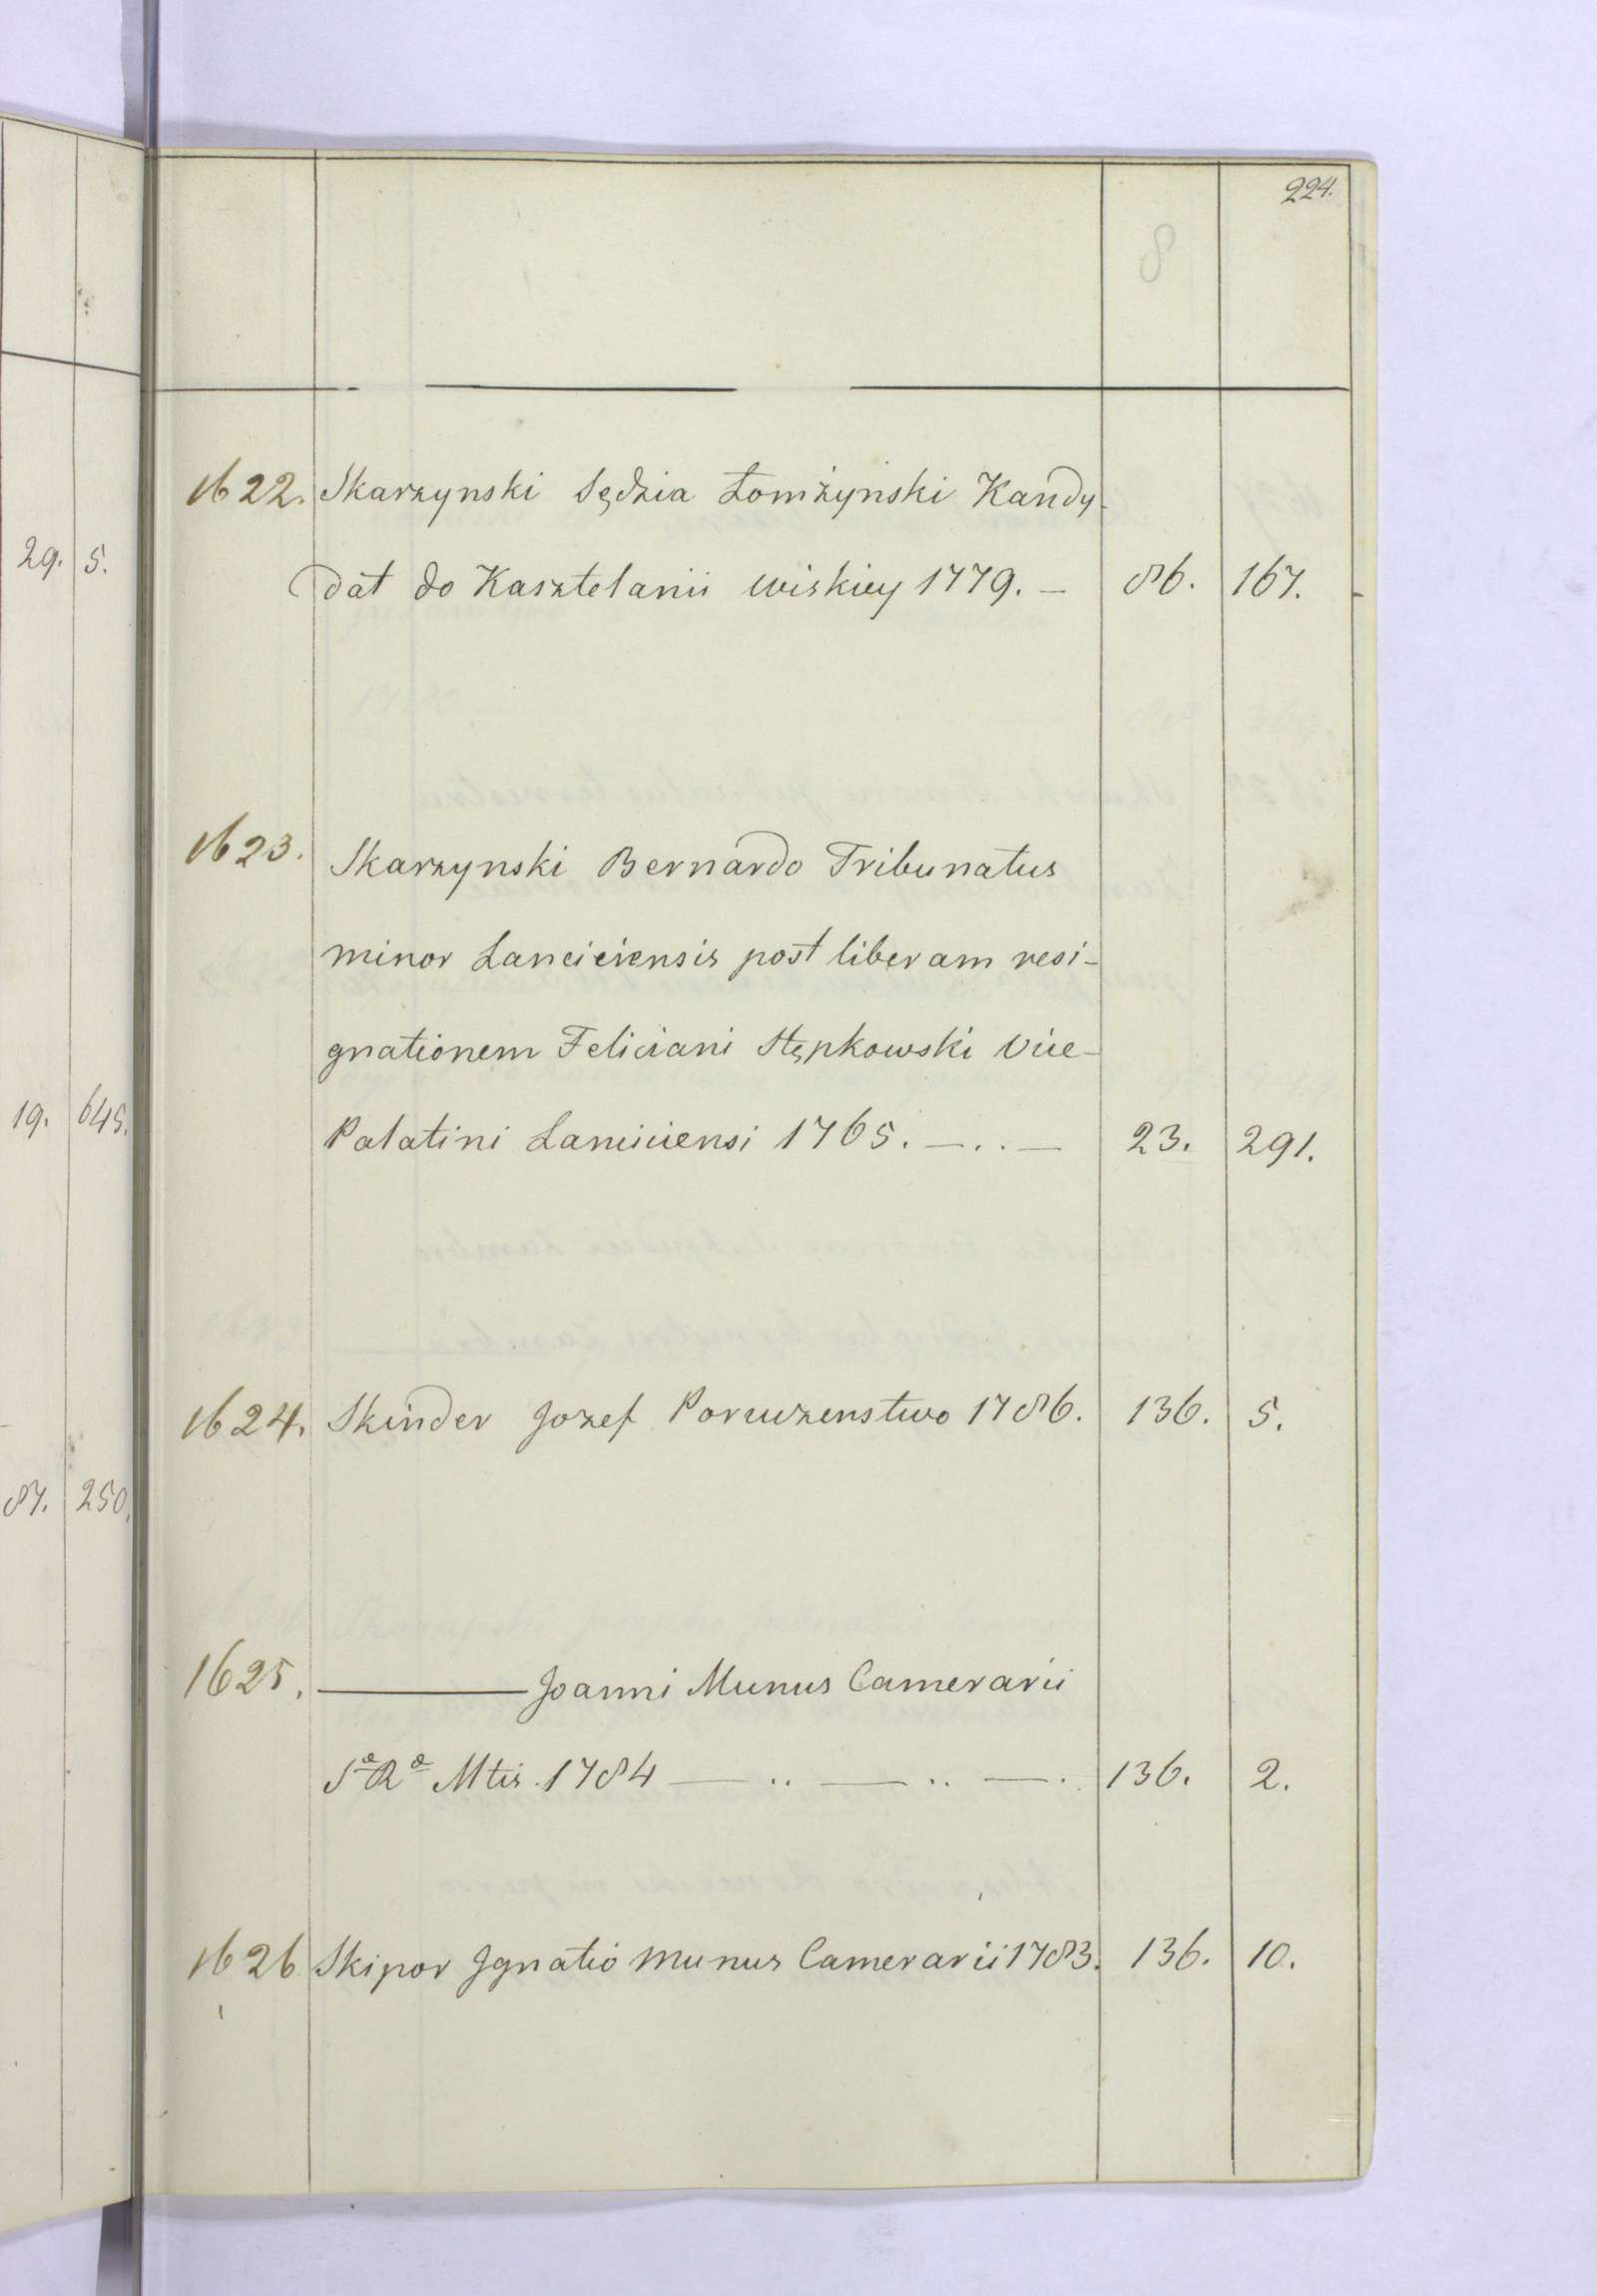 224.
1622. Skarzynski Sędzia Łomżyński Kandy-
dat do Kasztelanii wiskiey 1779. — 86. 167.
1623. Skarzynski Bernardo Tribunatus
minor Lanciciensis post liberam resi-
gnationem Feliciani Stępkowski Vice-
Palatini Lanciciensi 1765. —..— 23. 291.
1624. Skinder Jozef Poruczenstwo 1786. 136. 5.
1625. ——— Joanni Munus Camerarii
Sæ Ræ Mtis. 1784 — .. — .. — . 136. 2.
1626 Skipor Jgnatio Munus Camerarii 1783. 136. 10.
29. 5.
19. 645.
87. 250.